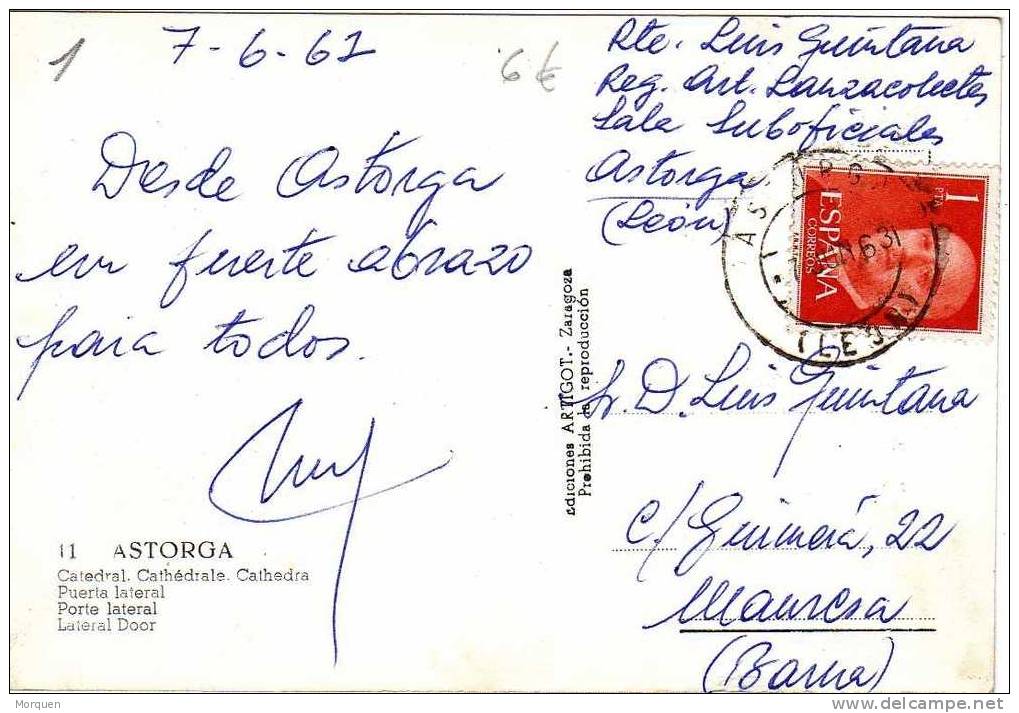 1
7-6-61
6 €
Desde Astorga
un fuerte abrazo
para todos.
11 ASTORGA
Catedral. Cathédrale. Cathedra
Puerta lateral
Porte lateral
Lateral Door
Ediciones ARTIGOT.- Zaragoza
Prohibida la reproducción
Rte. Luis Quintana
Reg. Art. Lanzacohetes
Sala Suboficiales
Astorga.
(León)
1 PTA
ESPAÑA
CORREOS
ASTORGA
(LEON)
Sr. D. Luis Quintana
c/ Guimerá, 22
Manresa
(Barna)
Morquen
delcampe.net